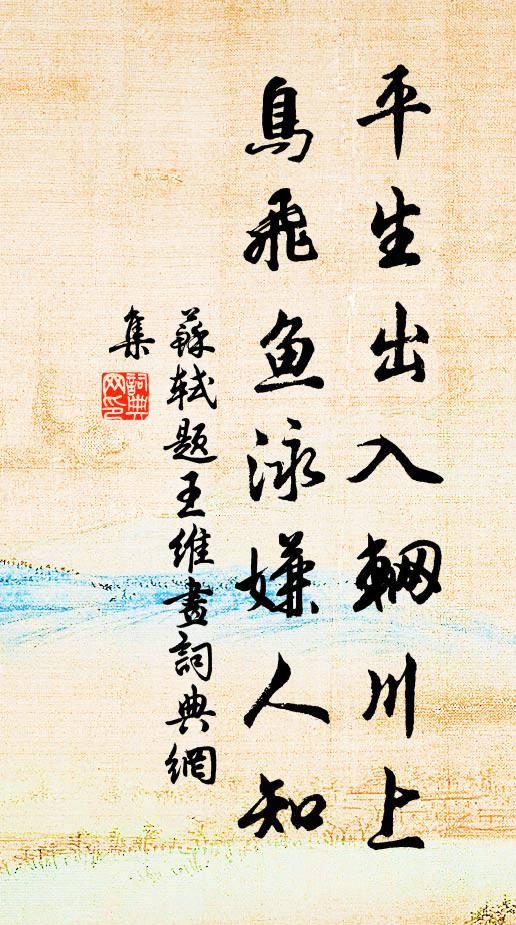 平生出入輞川上
鳥飛魚泳嫌人知
蘇軾題王維畫詞典網
集
詞典
网印